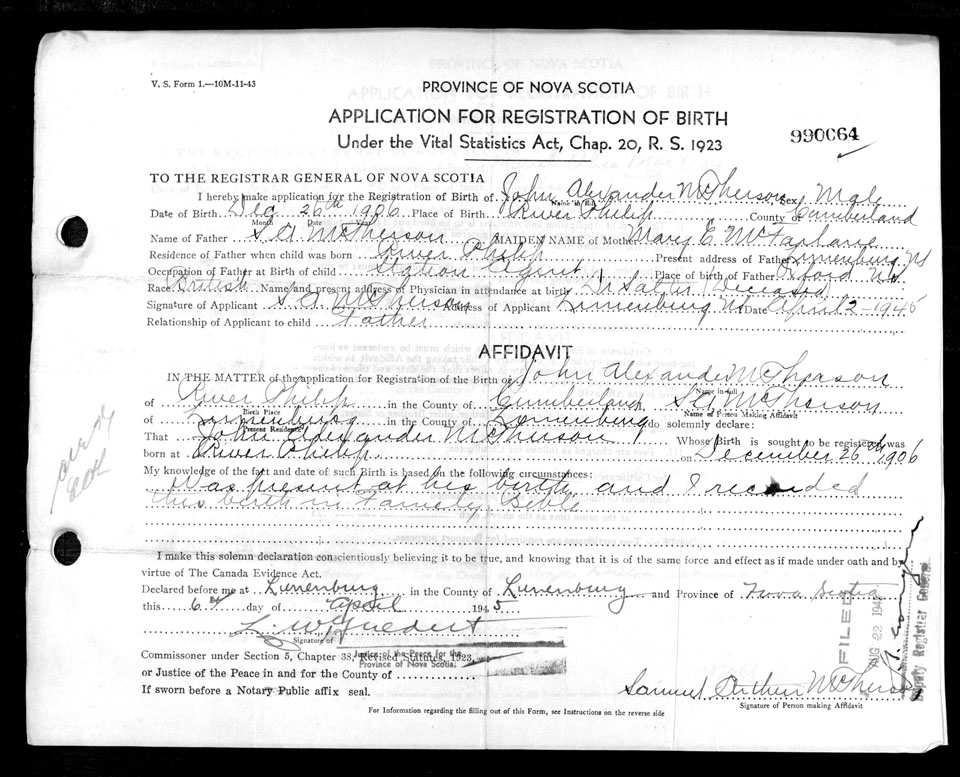 V. S. Form 1.—10M-11-43
PROVINCE OF NOVA SCOTIA
APPLICATION FOR REGISTRATION OF BIRTH
Under the Vital Statistics Act, Chap. 20, R. S. 1923
990064
TO THE REGISTRAR GENERAL OF NOVA SCOTIA
I hereby make application for the Registration of Birth of John Alexander McPherson Sex Male
Name in full
Date of Birth Dec 26th 1906 Place of Birth River Philip County Cumberland
Month Date Year
Name of Father S A McPherson MAIDEN NAME of Mother Mary E. McFarlane
Residence of Father when child was born River Philip Present address of Father Lunenburg NS
Occupation of Father at Birth of child Station Agent Place of birth of Father Oxford N.S.
Race British Name and present address of Physician in attendance at birth Salter (Deceased)
Signature of Applicant S A McPherson Address of Applicant Lunenburg NS Date April 2-1945
Relationship of Applicant to child Father
AFFIDAVIT
IN THE MATTER of the application for Registration of the Birth of John Alexander McPherson
Name in full
of River Philip in the County of Cumberland S A McPherson
Birth Place Name of Person Making Affidavit
of Lunenburg in the County of Lunenburg do solemnly declare:
Present Residence
That John Alexander McPherson Whose Birth is sought to be registered was
born at River Philip on December 26th 1906
My knowledge of the fact and date of such Birth is based on the following circumstances:
Was present at his birth and I recorded
this birth in Family Bible
I make this solemn declaration conscientiously believing it to be true, and knowing that it is of the same force and effect as if made under oath and by
virtue of The Canada Evidence Act.
Declared before me at Lunenburg in the County of Lunenburg and Province of Nova Scotia
this 6th day of April 1945
Signature of
Justice of the Peace for the
Province of Nova Scotia.
Commissioner under Section 5, Chapter 38, Revised Statutes, 1923,
or Justice of the Peace in and for the County of
If sworn before a Notary Public affix seal.
Samuel Arthur McPherson
Signature of Person making Affidavit
For Information regarding the filling out of this Form, see Instructions on the reverse side
FILED
AUG 22
Deputy Registrar General